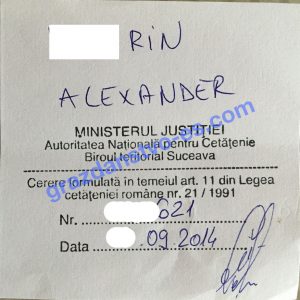 RIN
ALEXANDER
MINISTERUL JUSTITIEI
Autoritatea Naţională pentru Cetăţenie
Biroul teritorial Suceava
Cerere formulată în temeiul art. 11 din Legea
cetăţeniei române nr. 21 / 1991
Nr. 621
Data .09.2014
grazhdanstvo-es.com